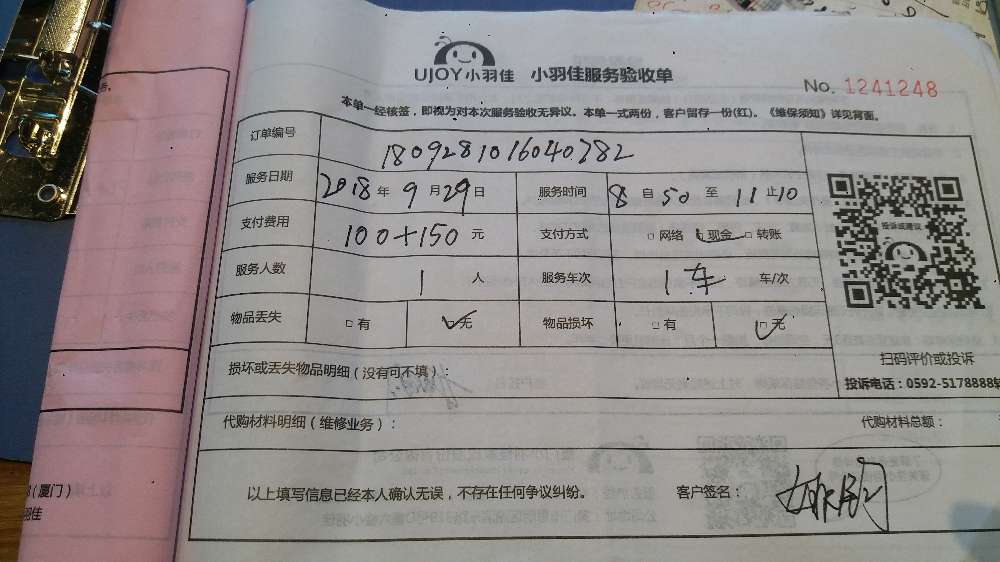 UJOY小羽佳 小羽佳服务验收单
No. 1241248
本单一经核签，即视为对本次服务验收无异议。本单一式两份，客户留存一份(红)。《维保须知》详见背面。
订单编号 1809281016040782
服务日期 2018年9月29日 服务时间 8自50至11止10
支付费用 100+150元 支付方式 □网络 □现金 □转账
投诉或建议
服务人数 1人 服务车次 1车 车/次
物品丢失 □有 □无 物品损坏 □有 □无
扫码评价或投诉
损坏或丢失物品明细（没有可不填）：
投诉电话：0592-5178888转
代购材料明细（维修业务）： 代购材料总额：
以上填写信息已经本人确认无误，不存在任何争议纠纷。 客户签名：
（厦门）
羽佳